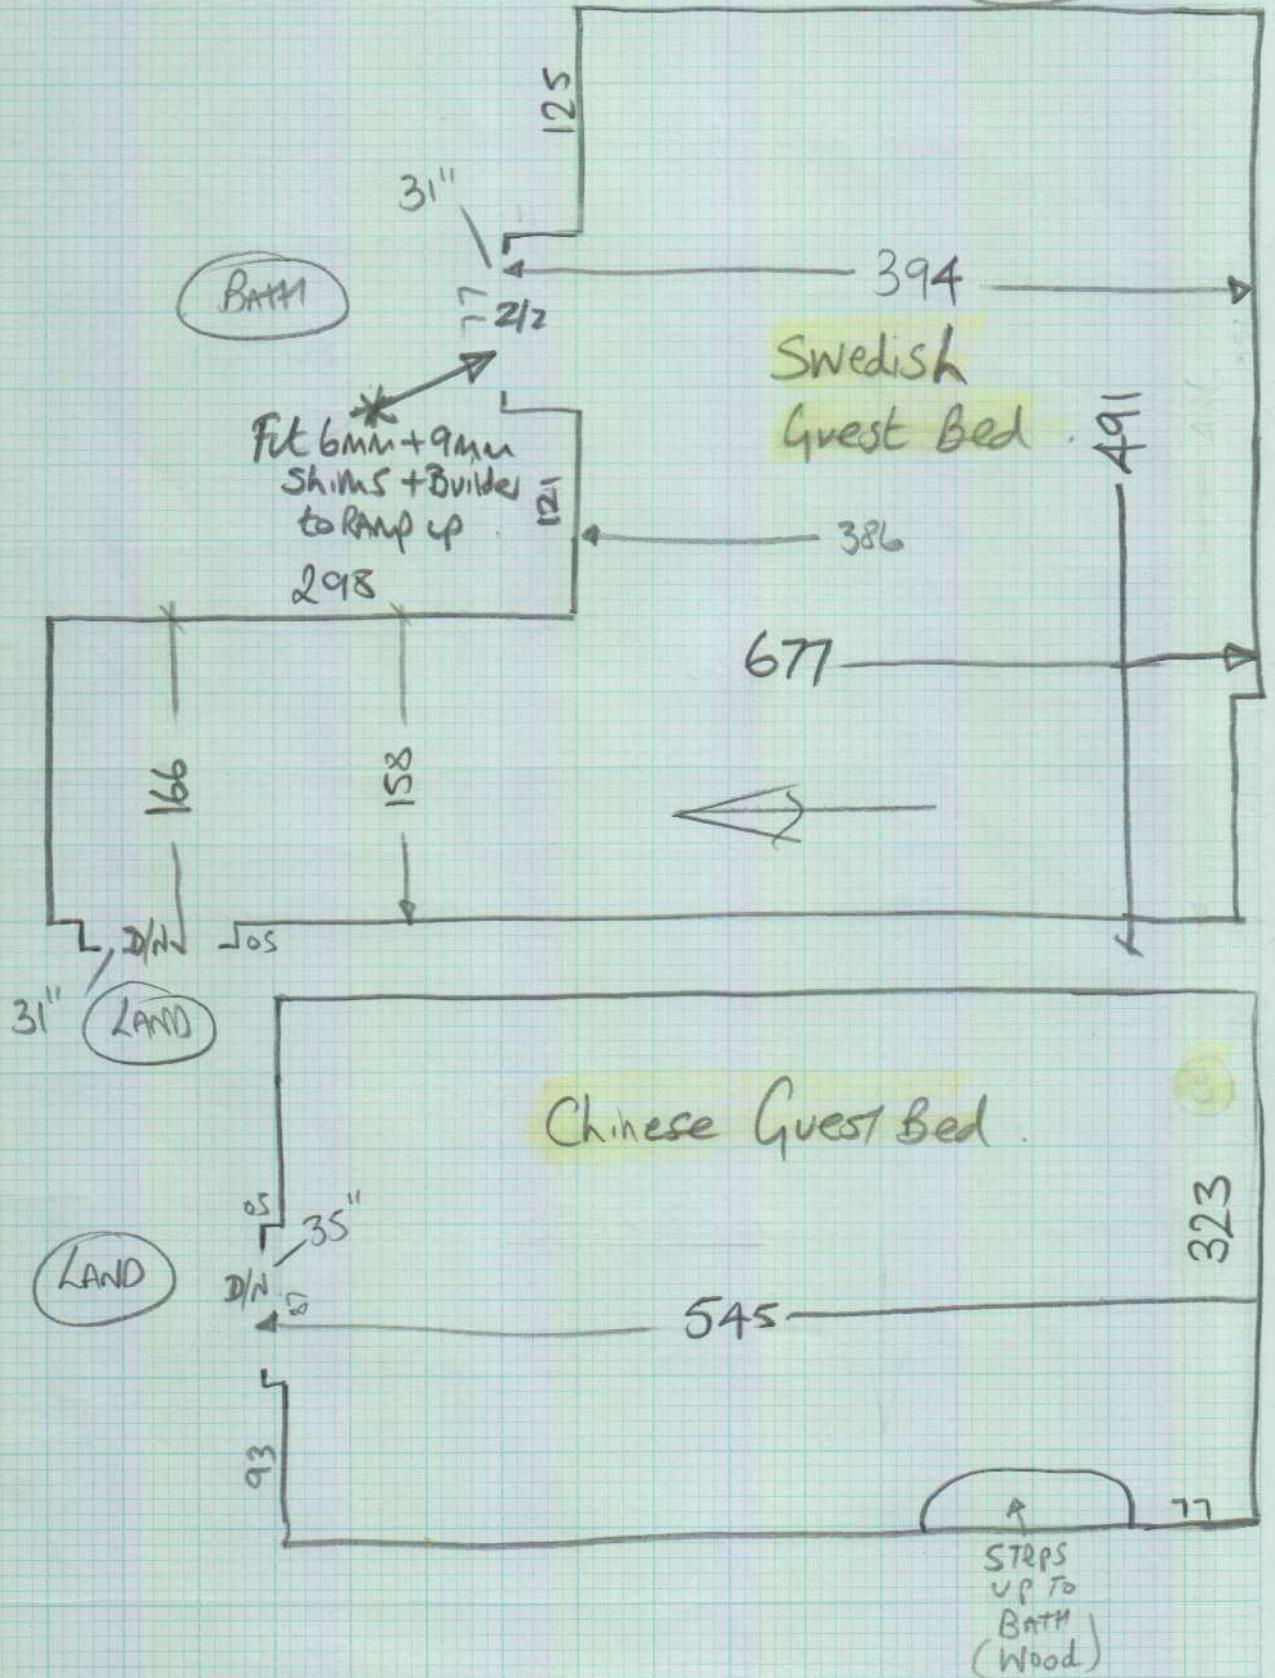 125
31"
BATH
394
77
Z/Z
Swedish
Guest Bed .
491
Fit 6mm + 9mm
Shims + Builder
to RAmp up
121
386
298
677
166
158
D/N
05
31"
LAND
Chinese Guest Bed .
323
05
35"
LAND
D/N
545
93
77
STEPS
UP TO
BATH
(Wood)